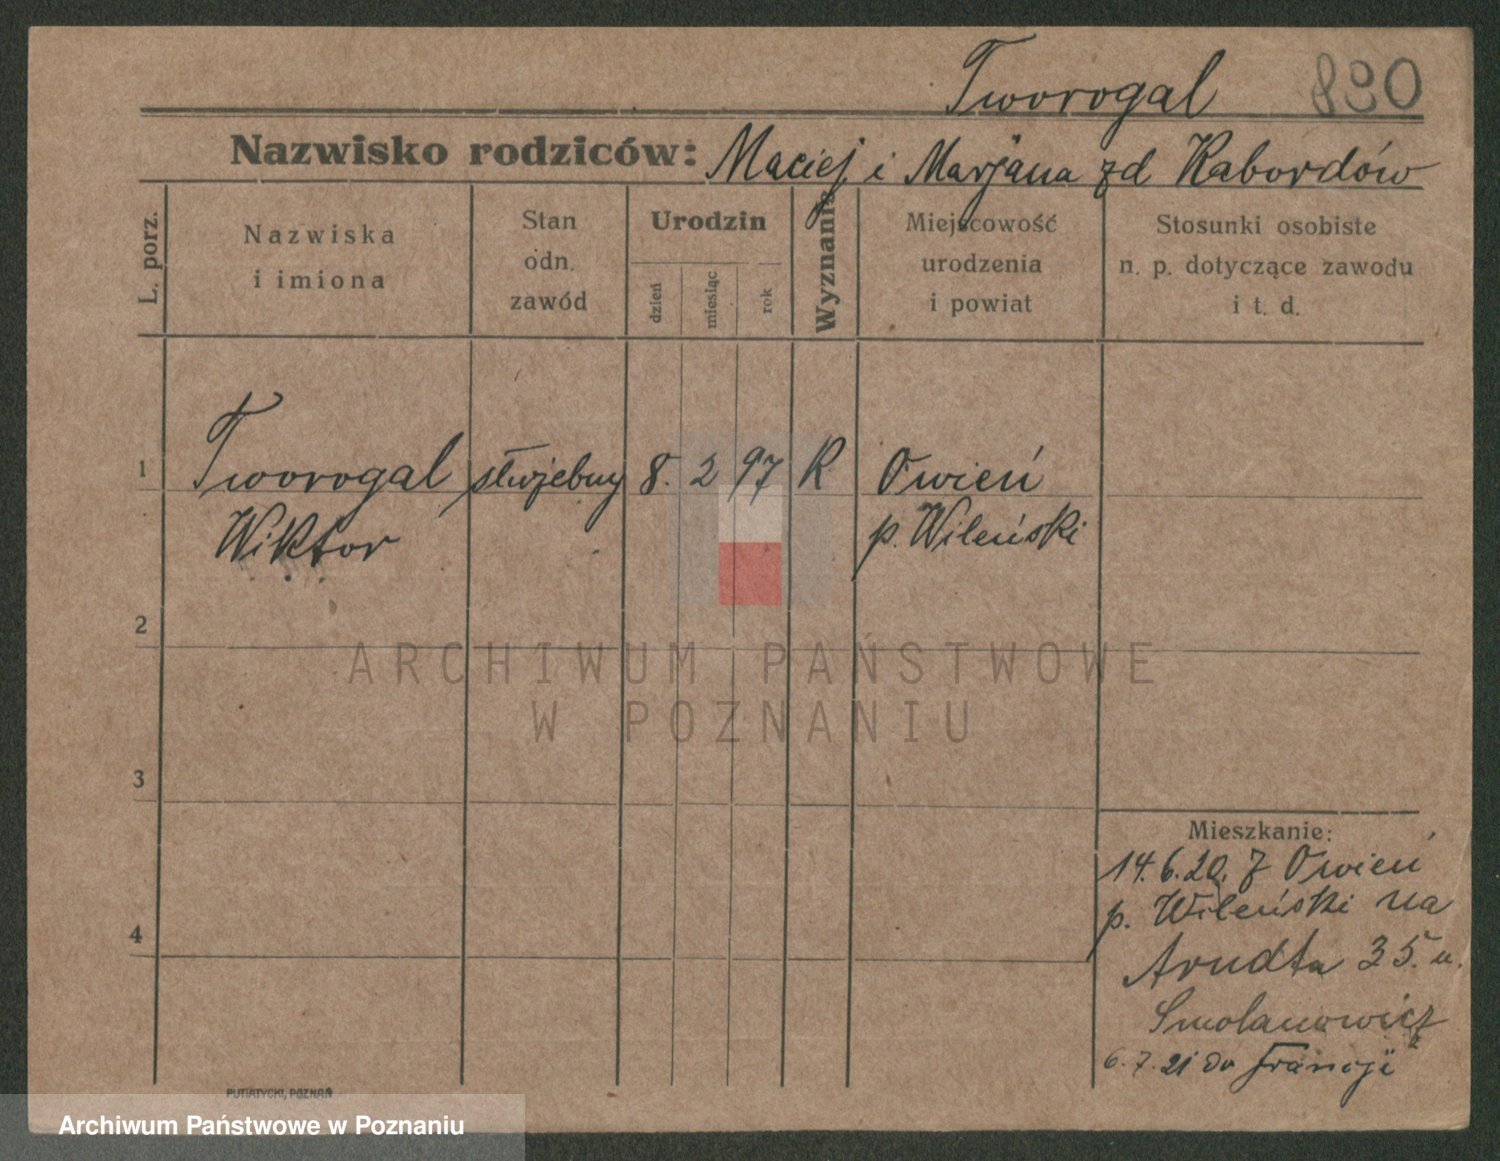 Tworogal 890
Nazwisko rodziców: Maciej i Marjana zd Kabordów
L. porz.
Nazwiska
i imiona
Stan
odn.
zawód
Urodzin
dzień
miesiąc
rok
Wyznanie
Miejscowość
urodzenia
i powiat
Stosunki osobiste
n. p. dotyczące zawodu
i t. d.
1 Tworogal służebny 8. 2 97 R Owień
Wiktor p. Wileński
2
3
4
Mieszkanie:
14.6.20. z Owień
p. Wileński na
Arndta 35. u.
Smolanowicz
6.7.21 do Francji
PUTIATYCKI, POZNAŃ
ARCHIWUM PAŃSTWOWE
W POZNANIU
Archiwum Państwowe w Poznaniu